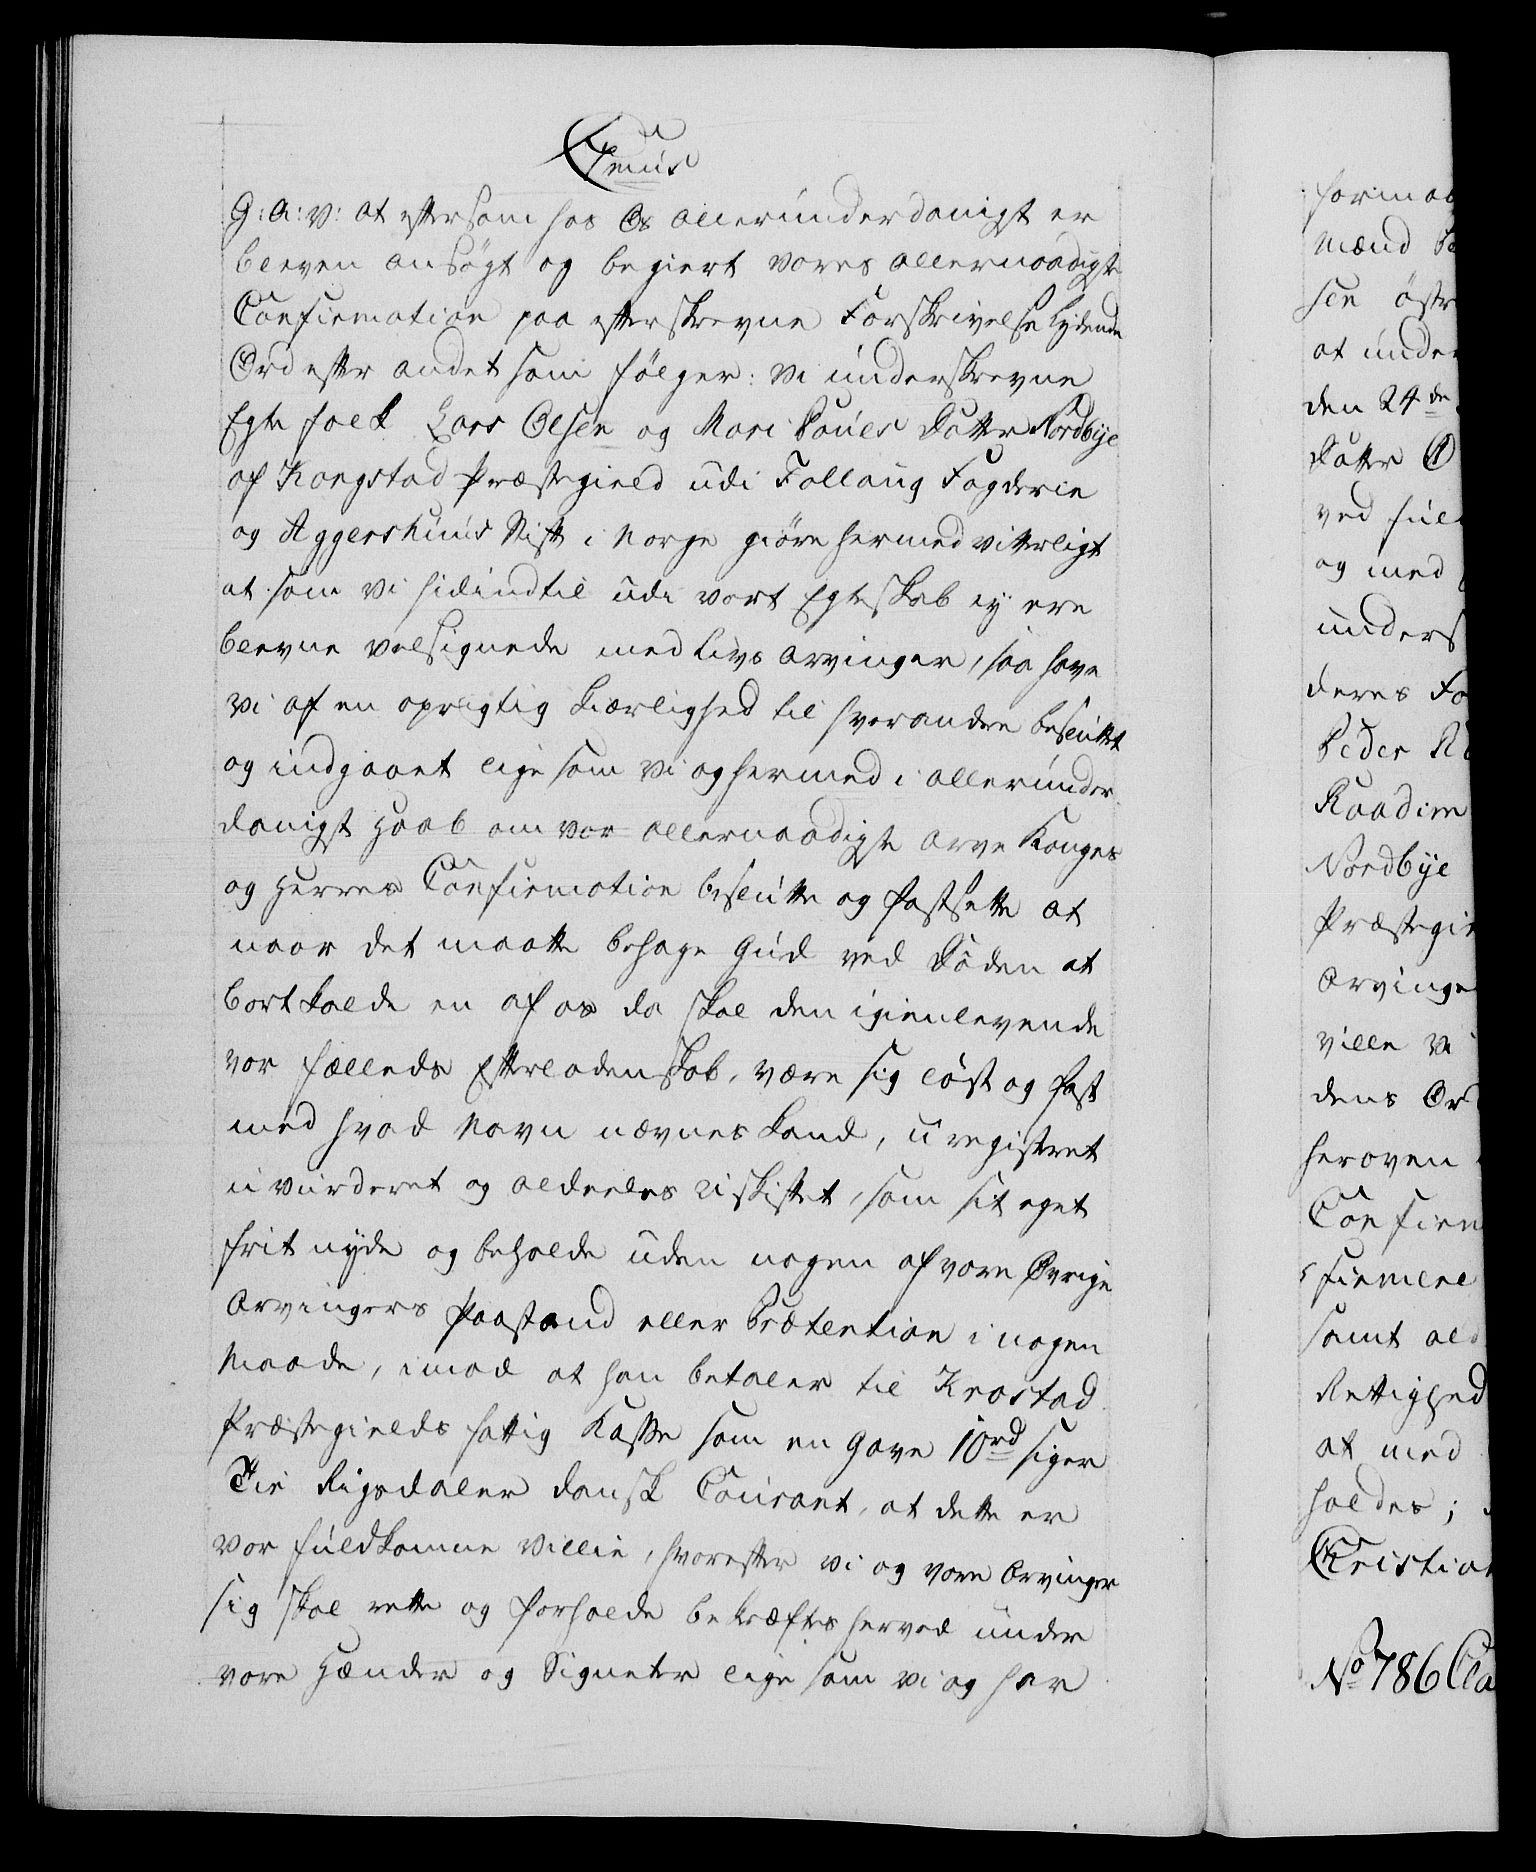 G: A: V: at eftersom hos Os allerunderdanigst er
bleven ansögt og begiert vores allernaadigste
Confirmation paa efterskrevne Forskrivelse lydende
Ord efter andet som fölger: Vi underskrevne
Egte folk Lars Olsen og Mari Pouels Datter Nordbye
af Krogstad Præstegield udi Follaug Fogderie
og Aggershuus Stift i Norge giöre hermed vitterligt
at som vi hidindtil udi vort Egteskab ey ere
blevne velsignede med Livs Arvinger, saa have
vi af en oprigtig Kiærlighed til hverandre besluttet
og indgaaet lige som vi og hermed i allerunder
danigst Haab om vor allernaadigste Arve Konges
og Herres Confirmation beslutte og fastsette at
naar det maatte behage Gud ved Döden at
bortkalde en af os da skal den igienlevende
vor fælleds Efterladenskab, være sig löst og fast
med hvad Navn nævnes kand, u registret
u vurderet og aldeeles uskiftet, som sit eget
frit nyde og beholde uden nogen af vore Øvrige
Arvingers Paastand eller Prætention i nogen
Maade, imod at han betaler til Krostad
Præstegields fattig Kasse som en Gave 10 rd siger
Tie Rigsdaler dansk Courant, at dette er
vor fuldkomne Villie, hvorefter vi og vore Arvinger
sig skal rette og forholde bekræftes herved under
vore Hænder og Signeter lige som vi og har
Mænd
sen östr
at under
den 24de
Datter
ved
og med
unders
deres
Peder
Nordbye
Præstegie
Arvinge
ville vi
dens
heroven
Confirm
firmere
samt
Rettighed
at med
holdes;
Christian
No 786